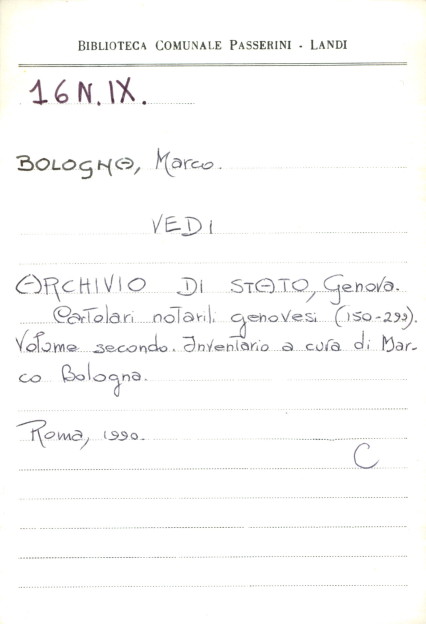 BIBLIOTECA COMUNALE PASSERINI - LANDI
16 N. IX.
BOLOGNA, Marco.
VEDI
ARCHIVIO DI STATO, Genova.
Cartolari notarili genovesi (150-299).
Volume secondo. Inventario a cura di Mar-
co Bologna.
Roma, 1990.
C